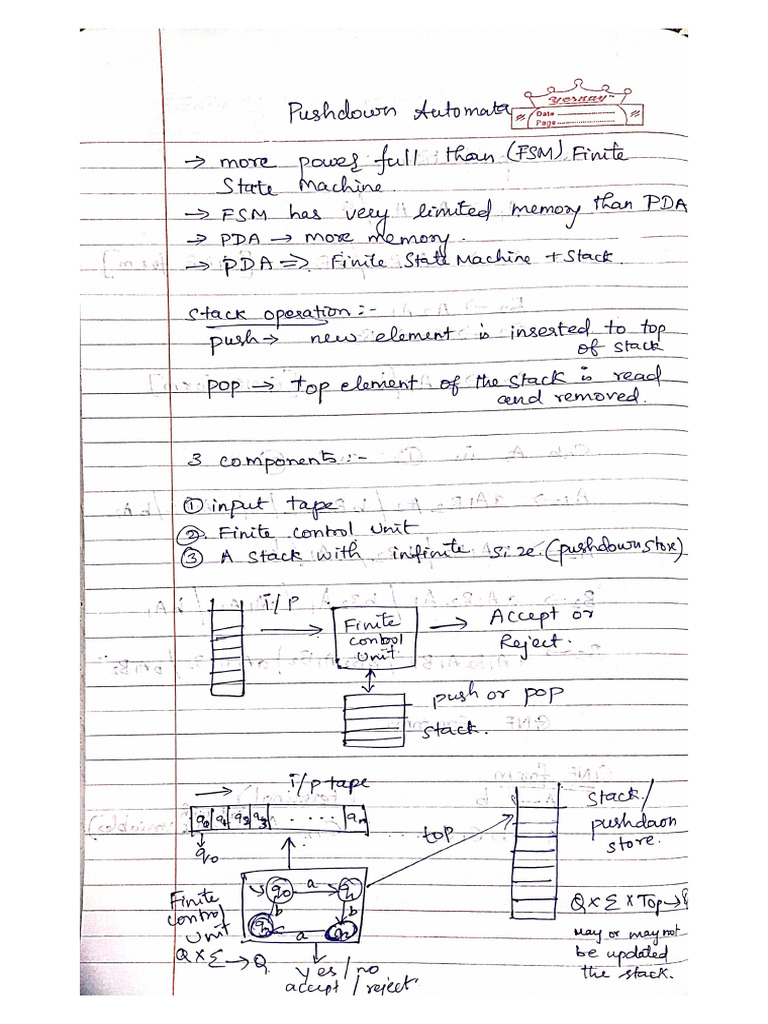 Pushdown Automata
Date
Page
→ more power full than (FSM) Finite
State Machine.
→ FSM has very limited memory than PDA
→ PDA → more memory.
→ PDA ⇒ Finite State Machine + Stack.
Stack operation :-
push → new element is inserted to top
of stack
pop → top element of the stack is read
and removed.
3 components :-
① input tape
② Finite control Unit
③ A stack with infinite size. (pushdown store)
I/P
Finite
control
Unit.
→ Accept or
Reject.
push or pop
stack.
→ I/p tape
q0 q1 q2 q3 . . . . qn
q0
top
Stack/
pushdaon
store.
Finite
control
Unit
Q × Σ → Q
q0 a q1
b b
a
yes / no
accept / reject
Q × Σ × Top →
May or may not
be updated
the stack.